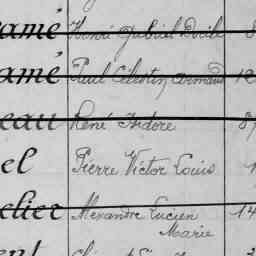 amé Henri Gabriel Emile 8
amé Paul Célestin Armand 12
eau René Isidore 87
el Pierre Victor Louis 1
elier Alexandre Lucien 14
Marie
ent